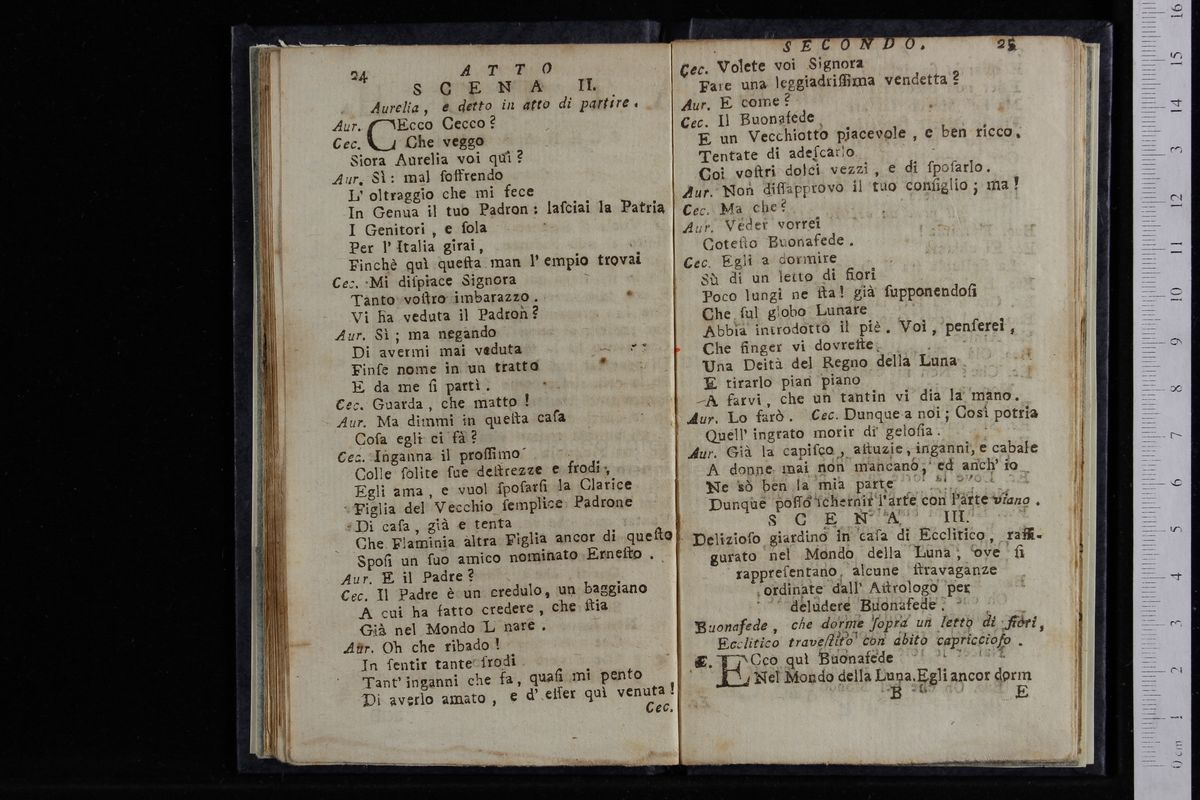 24
ATTO
SCENA II.
Aurelia, e detto in atto di partire.
Aur. CEcco Cecco?
Cec. Che veggo
Siora Aurelia voi quì?
Aur. Sì: mal soffrendo
L' oltraggio che mi fece
In Genua il tuo Padron: lasciai la Patria
I Genitori, e sola
Per l' Italia girai,
Finchè quì questa man l' empio trovai
Cec. Mi dispiace Signora
Tanto vostro imbarazzo.
Vi ha veduta il Padron?
Aur. Sì; ma negando
Di avermi mai veduta
Finse nome in un tratto
E da me si partì.
Cec. Guarda, che matto!
Aur. Ma dimmi in questa casa
Cosa egli ci fà?
Cec. Inganna il prossimo
Colle solite sue destrezze e frodi,
Egli ama, e vuol sposarsi la Clarice
Figlia del Vecchio semplice Padrone
Di casa, già e tenta
Che Flaminia altra Figlia ancor di questo
Sposi un suo amico nominato Ernesto.
Aur. E il Padre?
Cec. Il Padre è un credulo, un baggiano
A cui ha fatto credere, che stia
Già nel Mondo L nare.
Aur. Oh che ribado!
In sentir tante frodi
Tant' inganni che fa, quasi mi pento
Di averlo amato, e d' esser quì venuta!
Cec.
SECONDO. 25
Cec. Volete voi Signora
Fare una leggiadrissima vendetta?
Aur. E come?
Cec. Il Buonafede
E un Vecchiotto piacevole, e ben ricco.
Tentate di adescarlo
Coi vostri dolci vezzi, e di sposarlo.
Aur. Non disapprovo il tuo consiglio; ma!
Cec. Ma che?
Aur. Veder vorrei
Cotesto Buonafede.
Cec. Egli a dormire
Sù di un letto di fiori
Poco lungi ne sta! già supponendosi
Che sul globo Lunare
Abbia introdotto il piè. Voi, penserei,
Che finger vi dovreste
Una Deità del Regno della Luna
E tirarlo pian piano
A farvi, che un tantin vi dia la mano.
Aur. Lo farò. Cec. Dunque a noi; Così potria
Quell' ingrato morir di gelosia.
Aur. Già la capisco, astuzie, inganni, e cabale
A donne mai non mancano, ed anch' io
Ne sò ben la mia parte
Dunque posso schernir l'arte con l'arte viano.
SCENA III.
Delizioso giardino in casa di Ecclitico, raffi-
gurato nel Mondo della Luna, ove si
rappresentano alcune stravaganze
ordinate dall' Astrologo per
deludere Buonafede.
Buonafede, che dorme sopra un letto di fiori,
Ecclitico travestito con abito capriccioso.
E. ECco quì Buonafede
Nel Mondo della Luna. Egli ancor dorm
B E